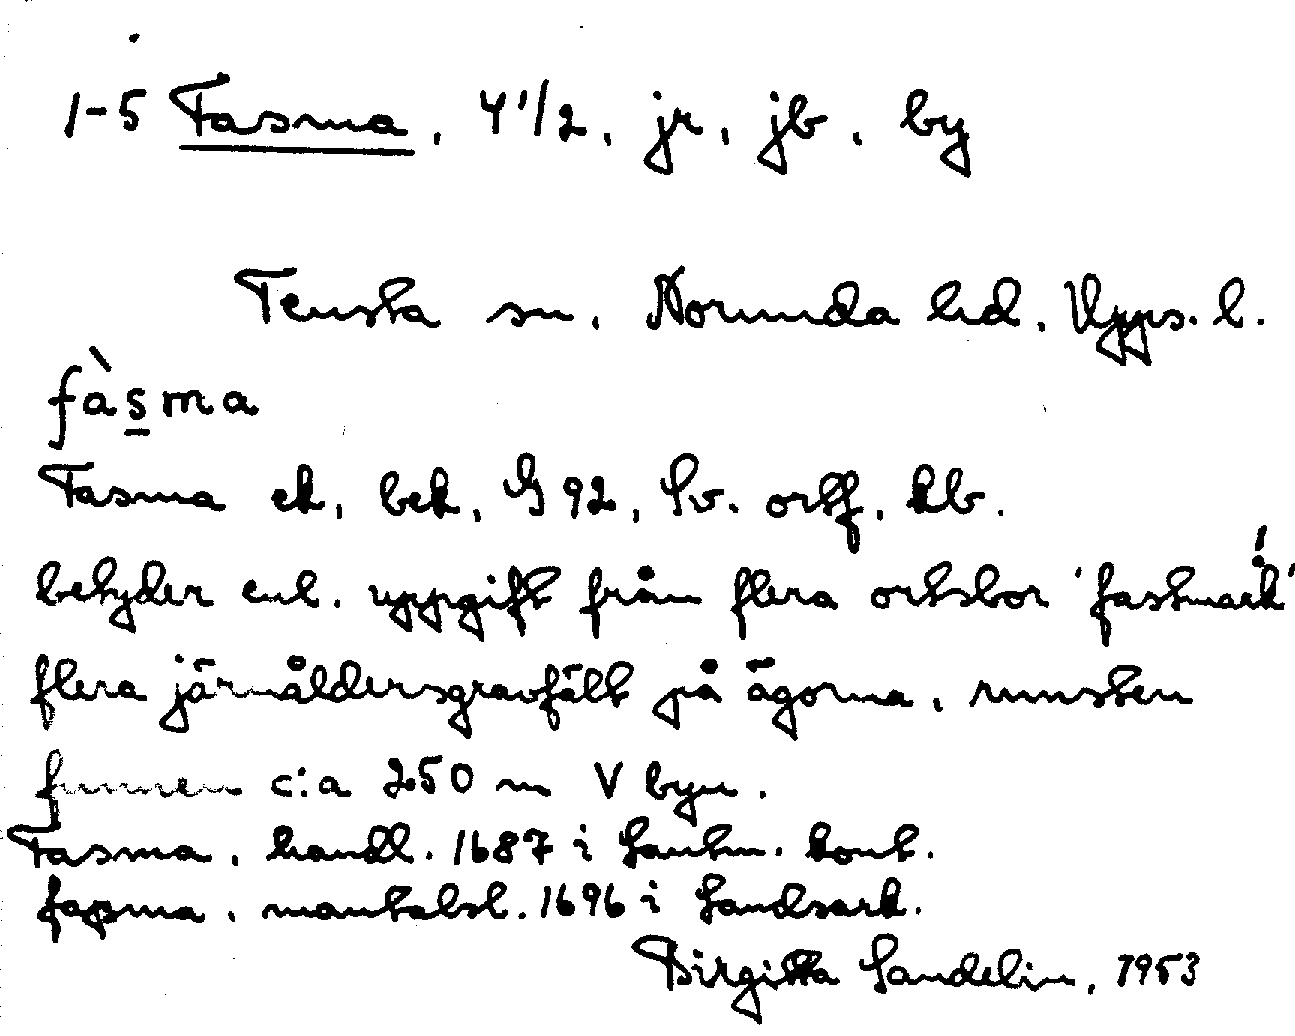 1-5 Fasma, 4 1/2, jr, jb, by
Tensta sn, Norunda hd. Upps. l.
fàsma
Fasma ek, bek, G 92, Sv. ortf, kb.
betyder enl. uppgift från flera ortsbor 'fastmark'
flera järnåldersgravfält på ägorna, runsten
funnen c:a 250 m V byn.
Fasma, handl. 1687 i Lantm. kont.
fasma, mantalsl. 1696 i Landsark.
Birgitta Sandelin, 1953